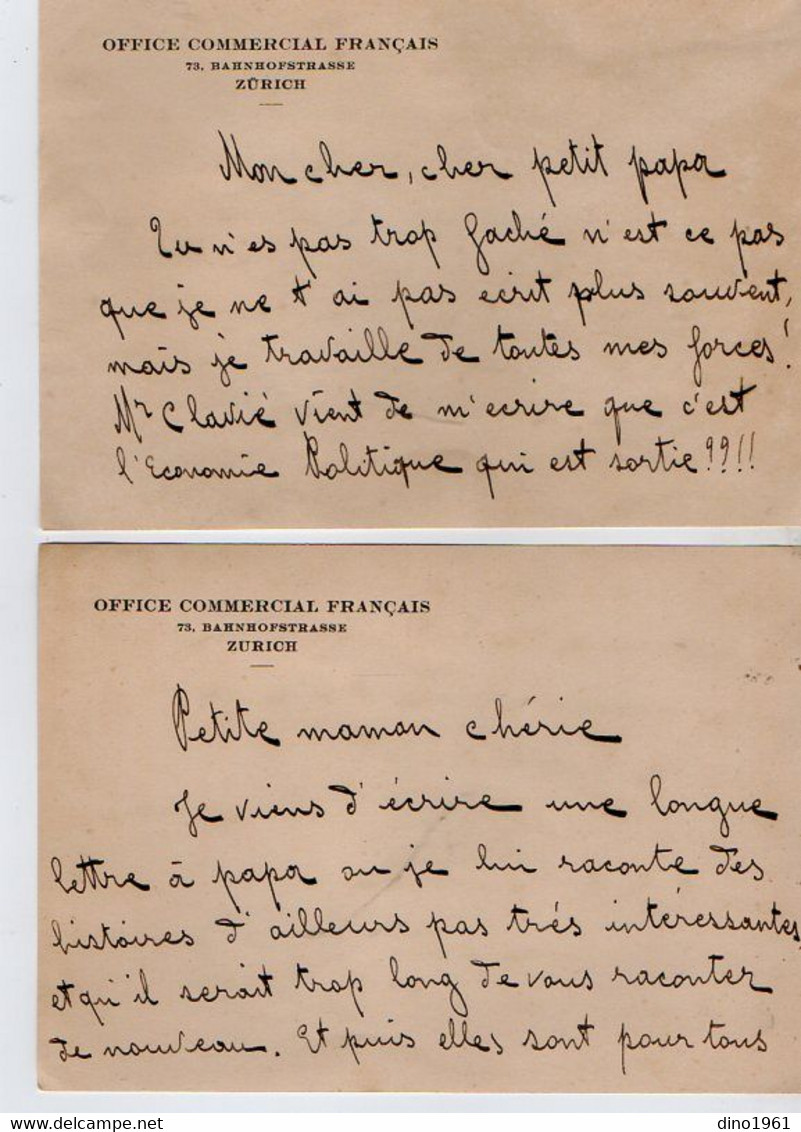 OFFICE COMMERCIAL FRANÇAIS
73, BAHNHOFSTRASSE
ZÜRICH
Mon cher, cher petit papa
Tu n'es pas trop faché n'est ce pas
que je ne t'ai pas ecrit plus souvent,
mais je travaille de toutes mes forces!
Mr Clavié vient de m'ecrire que c'est
l'Economie Politique qui est sortie??!!
OFFICE COMMERCIAL FRANÇAIS
73, BAHNHOFSTRASSE
ZURICH
Petite maman chérie
Je viens d'écrire une longue
lettre à papa ou je lui raconte des
histoires d'ailleurs pas trés intéressantes,
et qu'il serait trop long de vous raconter
de nouveau. Et puis elles sont pour tous
dino1961